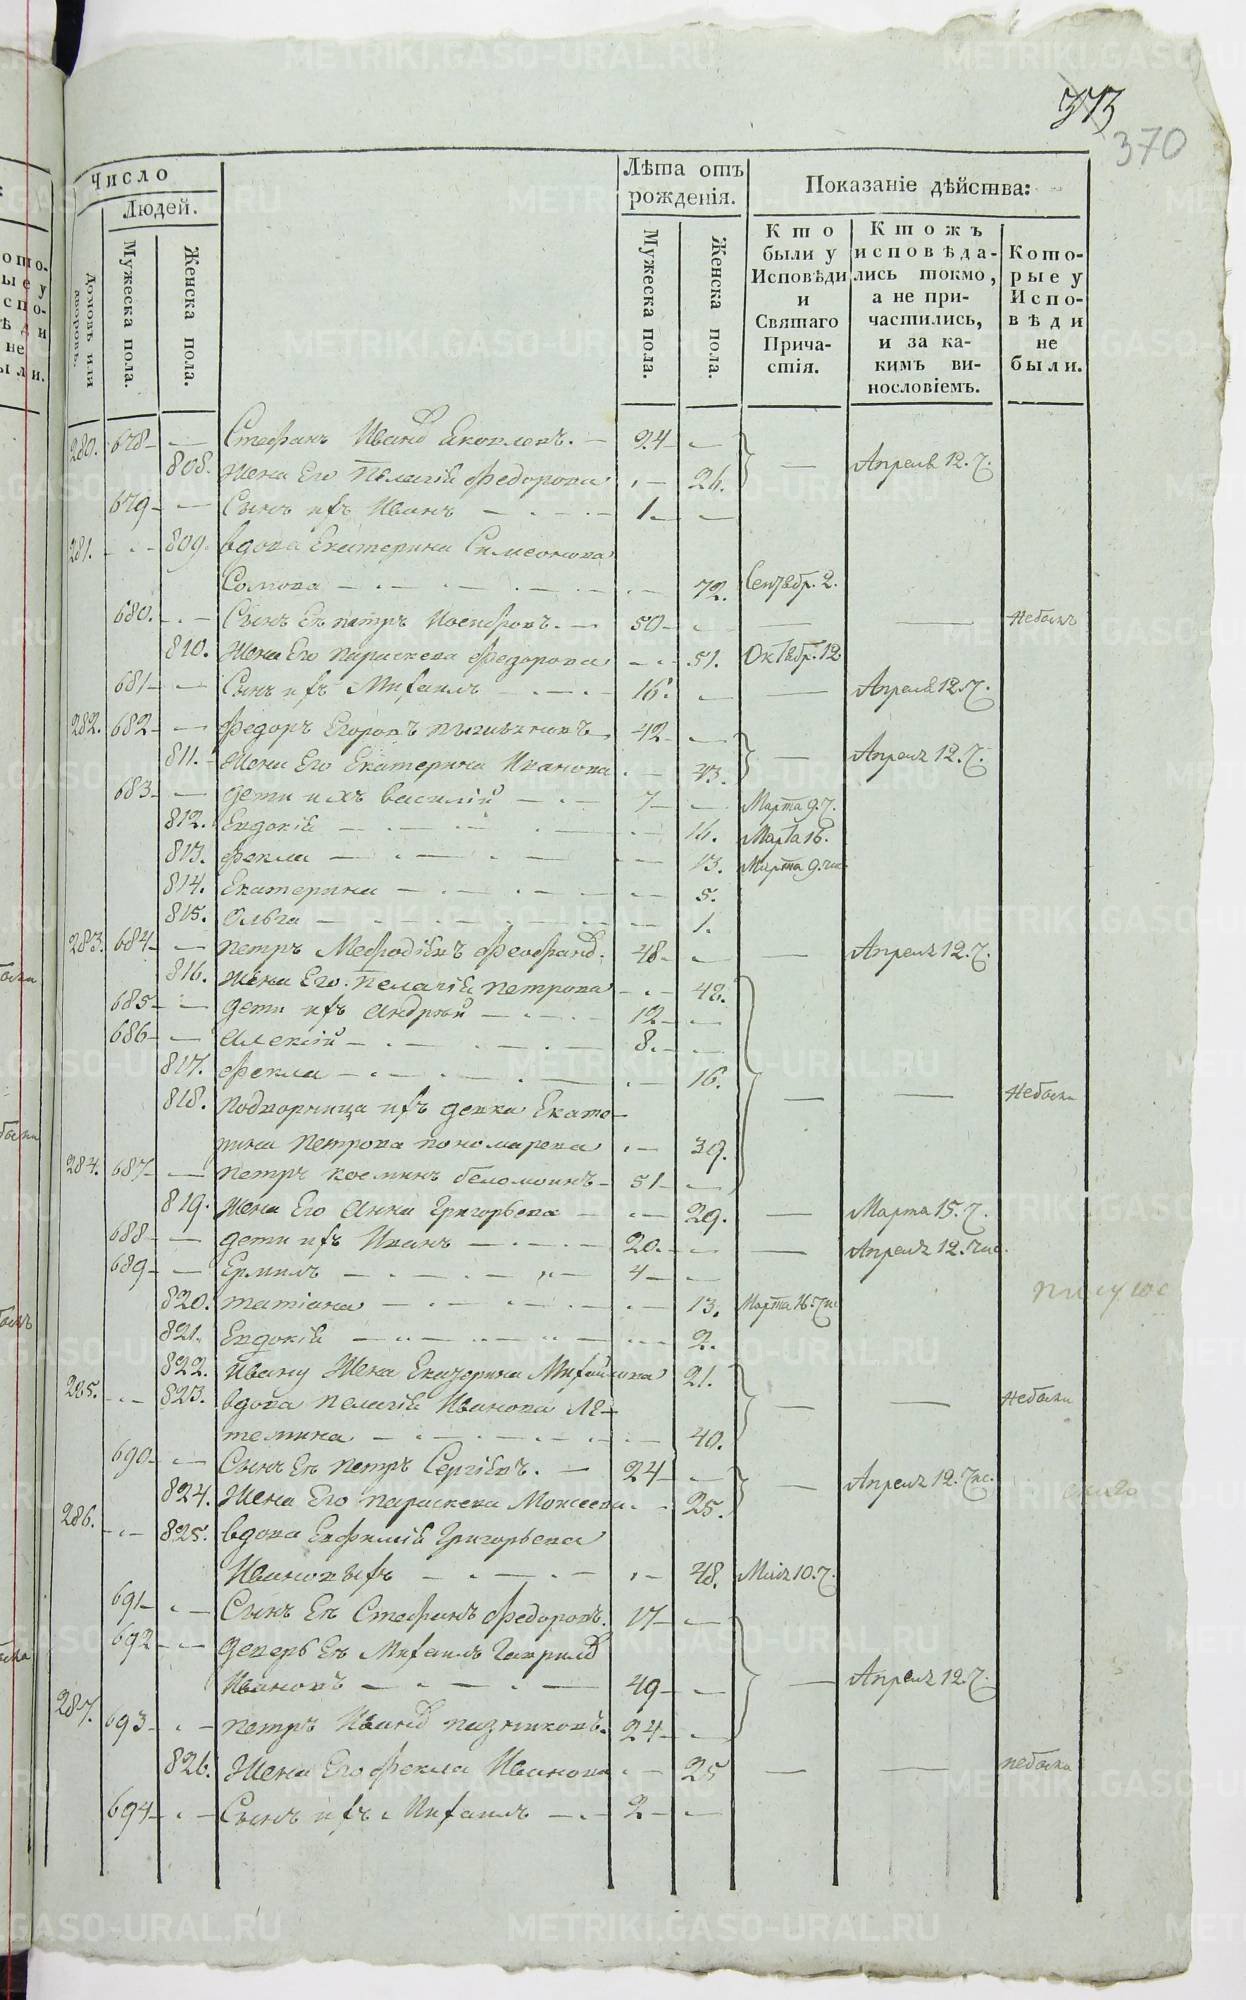 373
370
Число
Лѣта отъ рожденія.
Показаніе дѣйства:
Людей.
Домовъ или дворовъ.
Мужеска пола.
Женска пола.
Мужеска пола.
Женска пола.
Кто были у Исповѣди и Святаго Причастія.
Ктожъ исповѣдались токмо, а не причастились, и за какимъ винословіемъ.
Которые у Исповѣди не были.
280. 678 — Стефанъ Иванд Яковлевъ. — 24 — — Апреля 12. 7.
808. Жена Его Пелагія Федорова — 26.
679 — Сынъ ихъ Иванъ — 1 —
281. — 809. вдова Екатерина Симеонова
Сомова — 72. Сентябр. 2.
680. — Сынъ Ея петръ Иосифовъ. — 50 — — — небылъ
810. Жена Его параскева Федорова — 51. Октябр. 12
681 — Сынъ ихъ Михаилъ — 16. — — Апреля 12. 7.
282. 682 — Федоръ Егоровъ — 42 —
811. Жена Его Екатерина Иванова — 43. — Апреля 12. 7.
683 — дети ихъ Василій — 7 — Марта 9. 7.
812. Евдокія — 16. Марта 16.
813. Фекла — 13. Марта 9.
814. Екатерина — 5.
815. Ольга — 1.
283. 684 — петръ Мефодіевъ Феофанд. 48 — — Апреля 12. 7.
816. Жена Его Пелагія петрова — 48.
685 — дети ихъ Андрей — 12 —
686 — Алексій — 8. —
817. Фекла — 16.
818. подворница ихъ девка Екате- — — небыли
рина петрова пономарева — 39.
284. 687 — петръ Косминъ беломоинъ — 51 —
819. Жена Его Анна Григорьева — 29. — Марта 15. 7.
688 — дети ихъ Иванъ — 20. — — Апреля 12.
689 — Ермилъ — 4 —
820. татіана — 13. Марта 16.
821. Евдокія — 2.
822. Ивану Жена Екатерина Михайлова 21.
285. — 823. вдова пелагія Иванова Ле- — — небыли
темина — 40.
690 — Сынъ Ея петръ Сергіевъ. — 24 — — Апреля 12.
824. Жена Его параскева Моисеева — 25.
286. — 825. вдова Евфимія Григорьева
Ивановыхъ — 48. Маія 10. 7.
691 — Сынъ Ея Стефанъ Федоровъ. 17 —
692 — деверь Ея Михаилъ Гаврилд
Ивановъ — 49 — — Апреля 12. 7.
287. 693 — петръ Иванд пазниковъ. 24 —
826. Жена Его Фекла Иванова — 25 — — небыла
694 — Сынъ ихъ Михаилъ — 2 —
METRIKI.GASO-URAL.RU